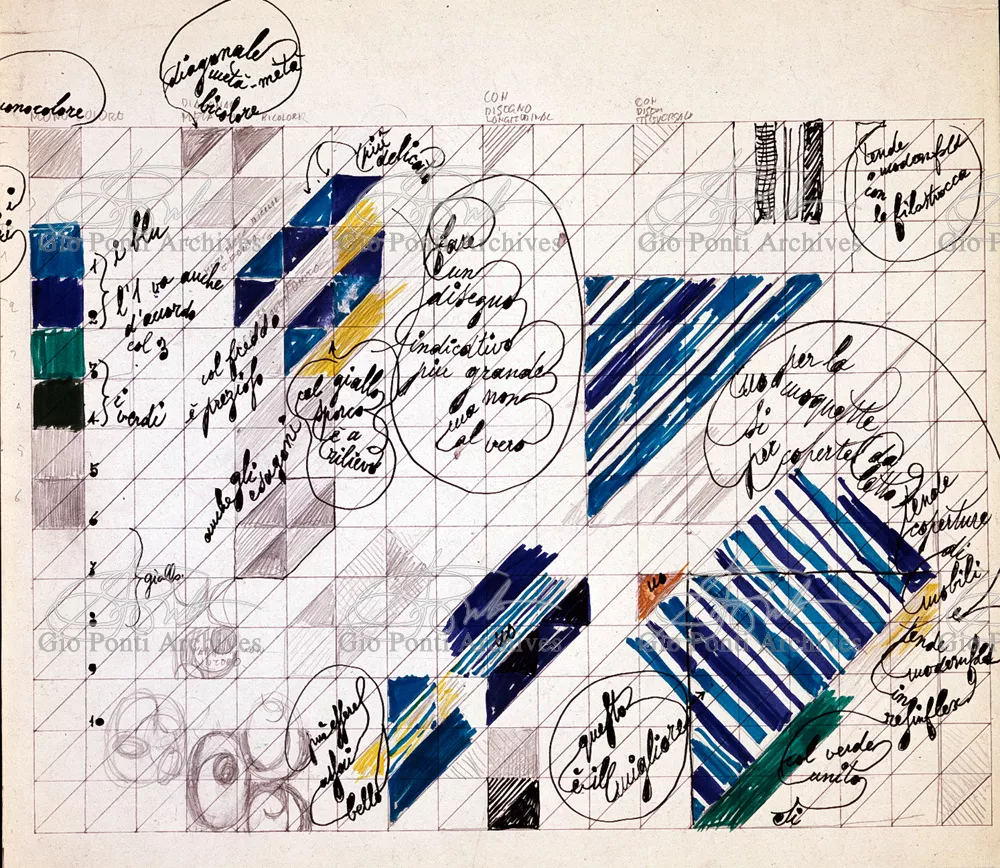 diagonale
metà-metà
bicolore
monocolore
MONOCOLORO
BICOLORE
CON
DISEGNO
LONGITUDINAL
CON
DISEGN
più
delicato
tende
modernfold
con
la filastrocca
1
i blu
l'1 va anche
2
d'accordo
col 3
3
i
verdi
4
5
6
7
giallo
8
9
10
fare
un
disegno
indicativo
più grande
ma non
al vero
col freddo
è prezioso
anche gli
esagoni
col giallo
sporco
è a
rilievo
no per la
moquette
si
per coperte da
letto
tende
coperture
di
mobili
e
tende
modernfold
in
resinflex
no
no
può essere
assai
bello
questo
è il migliore
col verde
unito
si
Gio Ponti Archives
Gio Ponti Archives
Gio Ponti Archives
Gio Ponti Archives
Gio Ponti Archives
Gio Ponti Archives